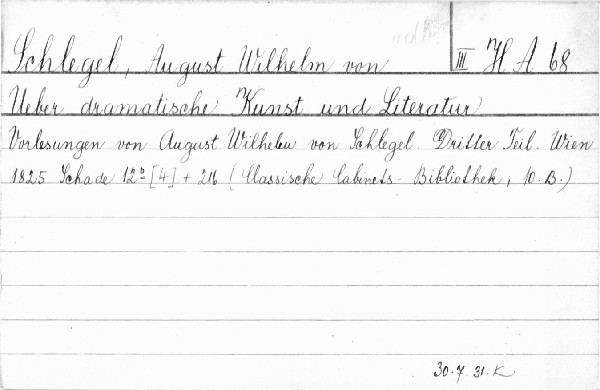 Schlegel, August Wilhelm von
III H A 68
Ueber dramatische Kunst und Literatur
Vorlesungen von August Wilhelm von Schlegel. Dritter Teil. Wien
1825 Schade 12° [4] + 216 (Classische Cabinets-Bibliothek, 10. B.)
30.7.31. K